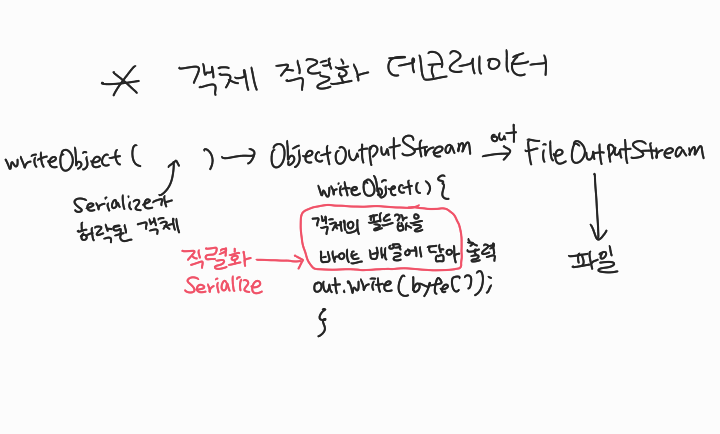 * 객체 직렬화 데코레이터
writeObject( ) → ObjectOutputStream out → FileOutputStream
Serialize가
허락된 객체
writeObject() {
객체의 필드값을
바이트 배열에 담아 출력
직렬화
Serialize
out.write(byte[]);
}
파일